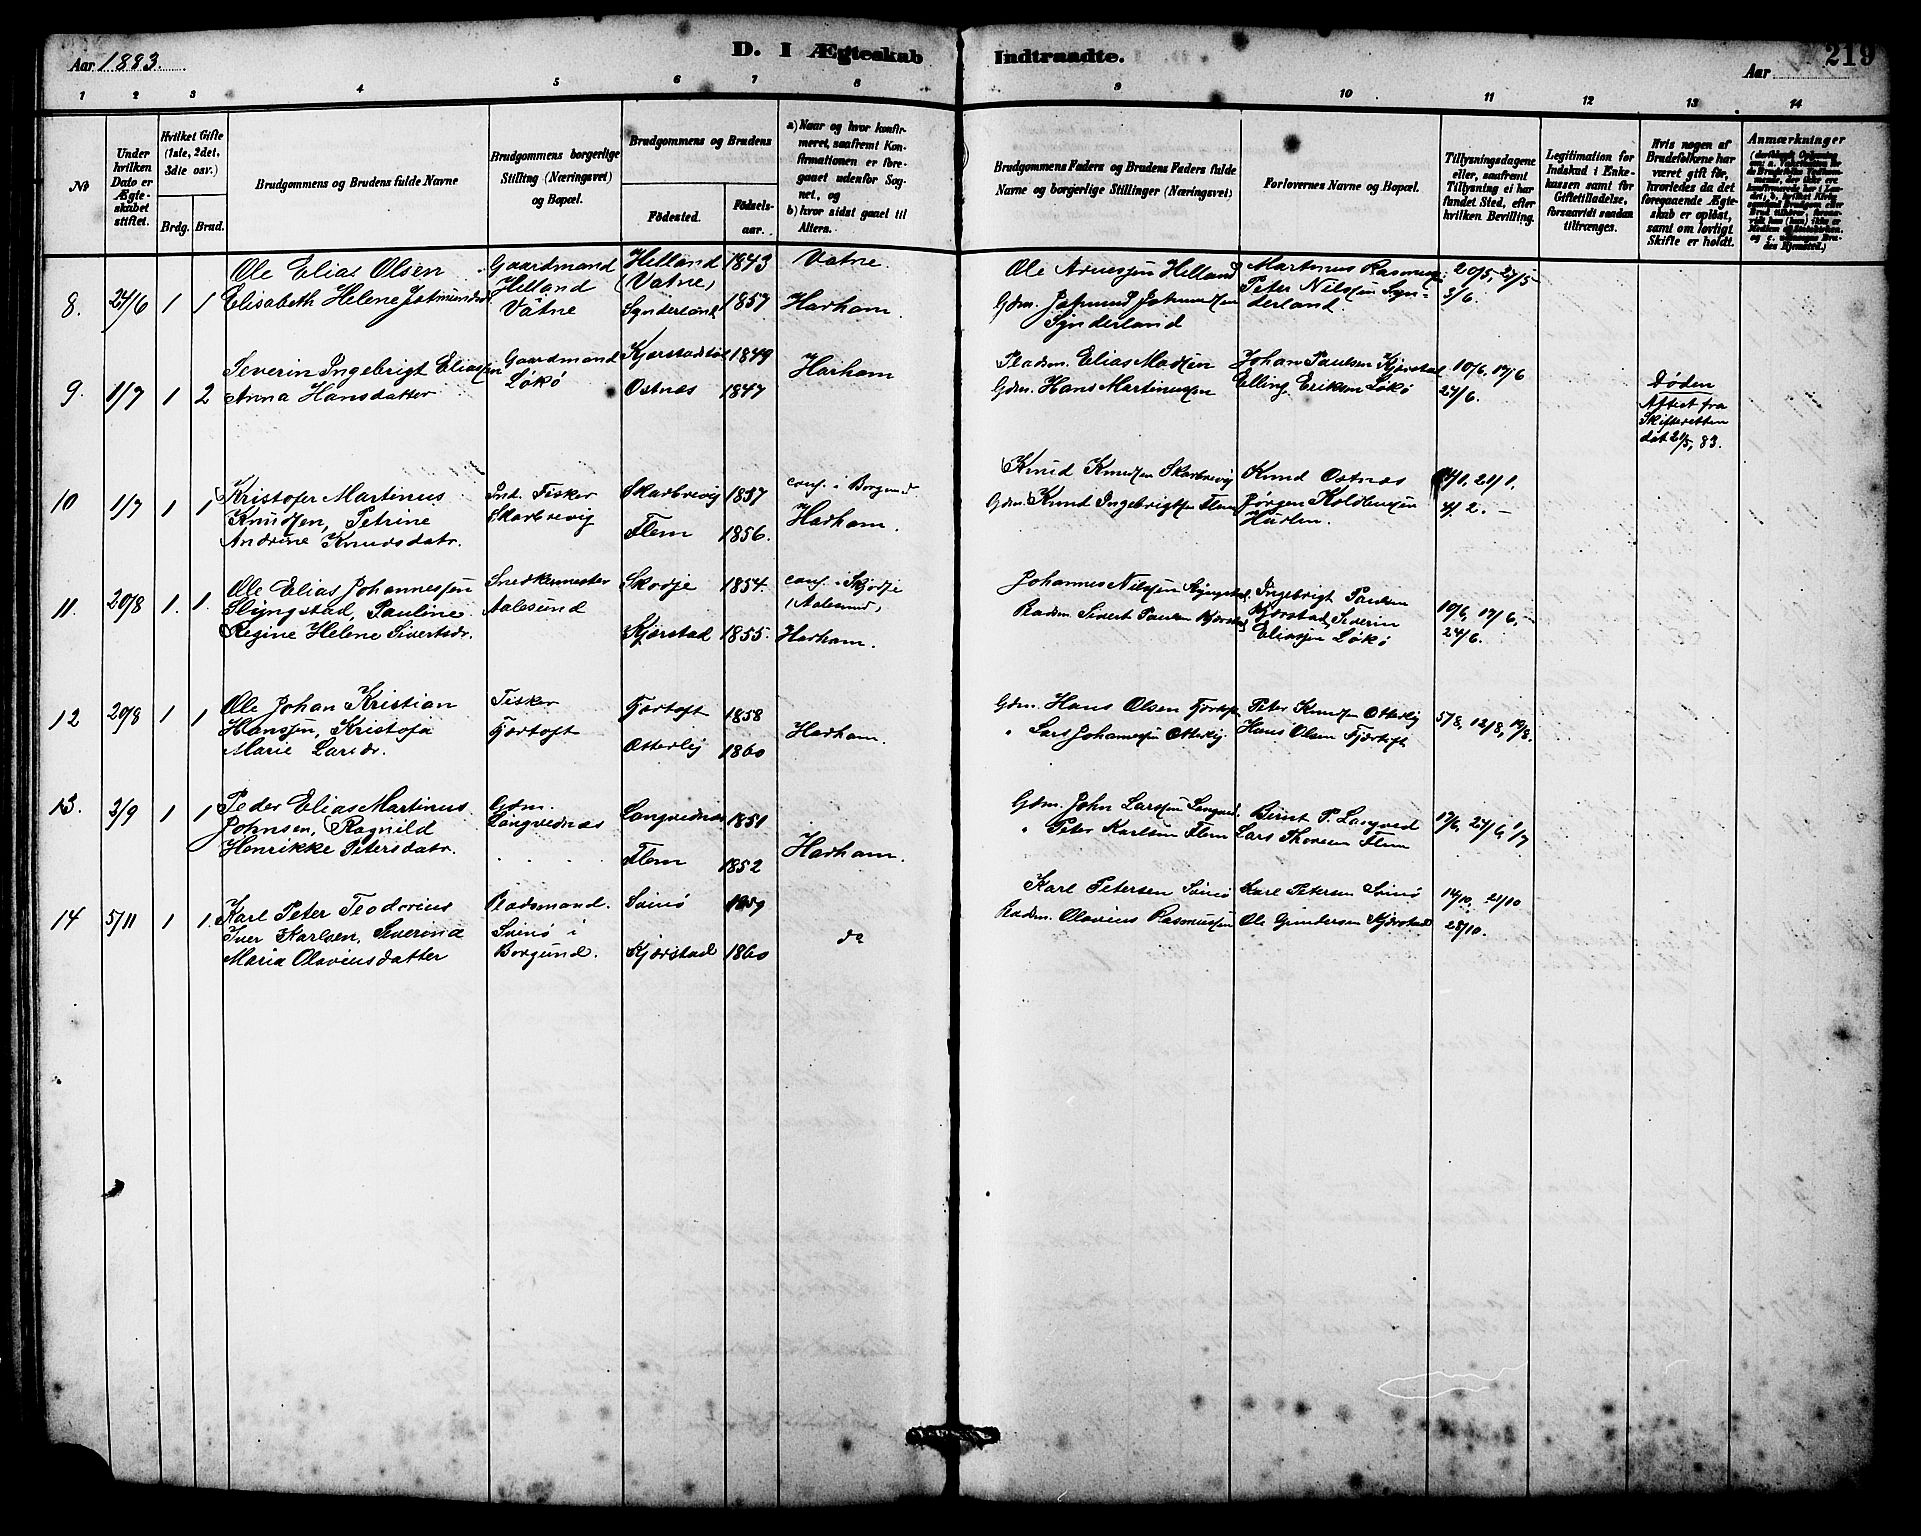 Aar 1883.
D. I Ægteskab Indtraadte.
219
Aar
1 2 3 4 5 6 7 8 9 10 11 12 13 14
No
Under hvilken Dato er Ægteskabet stiftet.
Hvilket Gifte (1ste, 2det, 3die osv.)
Brdg. Brud.
Brudgommens og Brudens fulde Navne
Brudgommens borgerlige Stilling (Næringsvei) og Bopæl.
Brudgommens og Brudens
Födested.
Födselsaar.
a) Naar og hvor konfirmeret, saafremt Konfirmationen er foregaaet udenfor Sognet, og
b) hvor sidst gaaet til Alters.
Brudgommens Faders og Brudens Faders fulde Navne og borgerlige Stillinger (Næringsvei)
Forlovernes Navne og Bopæl.
Tillysningsdagene eller, saafremt Tillysning ei har fundet Sted, efter hvilken Bevilling.
Legitimation for Indskud i Enkekassen samt for Giftetilladelse, forsaavidt saadan tiltrænges.
Hvis nogen af Brudefolkene har været gift för, hvorledes da det foregaaende Ægteskab er oplöst, samt om lovligt Skifte er holdt.
Anmærkninger
8. 24/6 1 1
Ole Elias Olsen
Elisabeth Helene Jetmundsd.
Gaardmand
Helland
Vatne
Helland 1843
(Vatne)
Synderland 1857
Vatne.
Harham.
Ole Arnessen Helland
Gdm.
Synderland
Martinus Rasmus
Peter Nilssen Synderland.
20/5, 27/5
3/6.
9. 1/7 1 2
Severin Ingebrigt Eliassen
Anna Hansdatter
Gaardmand
Løkø
1849
Ostnæs 1847
Harham
Elias Madsen
Gdm. Hans Martinussen
Johan Paulsen Kjærstad
Elling Eriksen Løkø
10/6, 17/6
24/6.
Døden
Attest fra
Skifteretten
dat 21/5, 83.
10 1/7 1 1
Kristofer Martinus
Knudsen, Petrine
Andrine Knudsdatr.
Ind. Fisker
Skarbrevig
Skarbrevig 1857
Flem 1856.
conf. i Borgund
Harham.
Knud Knudsen Skarbrevig
Gdm. Knud Ingebrigtsen Flem
Knud Ostnæs
Jørgen
Hurlen.
14/1, 21/1.
4/2.
11. 20/8 1. 1.
Ole Elias Johannessen
Slyngstad, Pauline
Regine Helene Sivertsdr.
Snedkermester
Aalesund
Skodje 1854.
Kjærstad 1855.
conf. i Skodje
(Aalesund)
Harham.
Johannes Nilssen Slyngstad
Sivert Paulsen Kjærstad
Ingebrigt Paulsen
Kjærstad, Severin
Eliassen Løkø
10/6, 17/6,
24/6.
12 20/8 1 1
Ole Johan Kristian
Hanssen, Kristofa
Marie Larsdr.
Fisker
Fjærtoft
Fjærtoft 1858
Otterlej 1860
Harham.
Gdm. Hans Olsen Fjærtoft
" Lars Johannessen Otterlej.
Peter Knudsen Otterlej
Hans Olsen Fjærtoft
5/8, 12/8, 19/8.
13. 3/9 1 1
Peder Elias Martinus
Johnsen, Ragnild
Henrikke Petersdatr.
Gdm.
Longvednæs
Longvednæs 1851
Flem 1852
Harham.
Gdm. John Larssen Longved.
" Peter Karlsen Flem
Bernt P. Longved
Lars Thorsen Flem
17/6, 24/6, 1/7
14 5/11 1 1.
Karl Peter Teodorius
Iver Karlsen, Severine
Marie Olaviusdatter
Aadsmand.
Svinø i
Borgund.
Svinø 1859
Kjærstad 1860
do
Karl Petersen Svinø
Olavius Rasmussen
Karl Petersen Svinø
Ole Gundersen Kjærstad
14/10, 21/10
28/10.